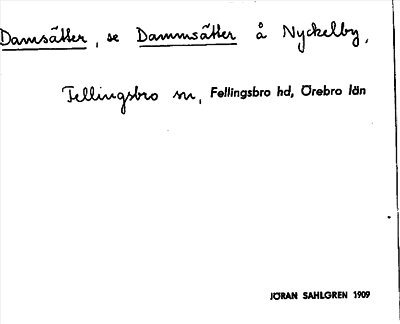 Damsätter, se Dammsätter å Nyckelby,
Fellingsbro sn, Fellingsbro hd, Örebro län
JÖRAN SAHLGREN 1909